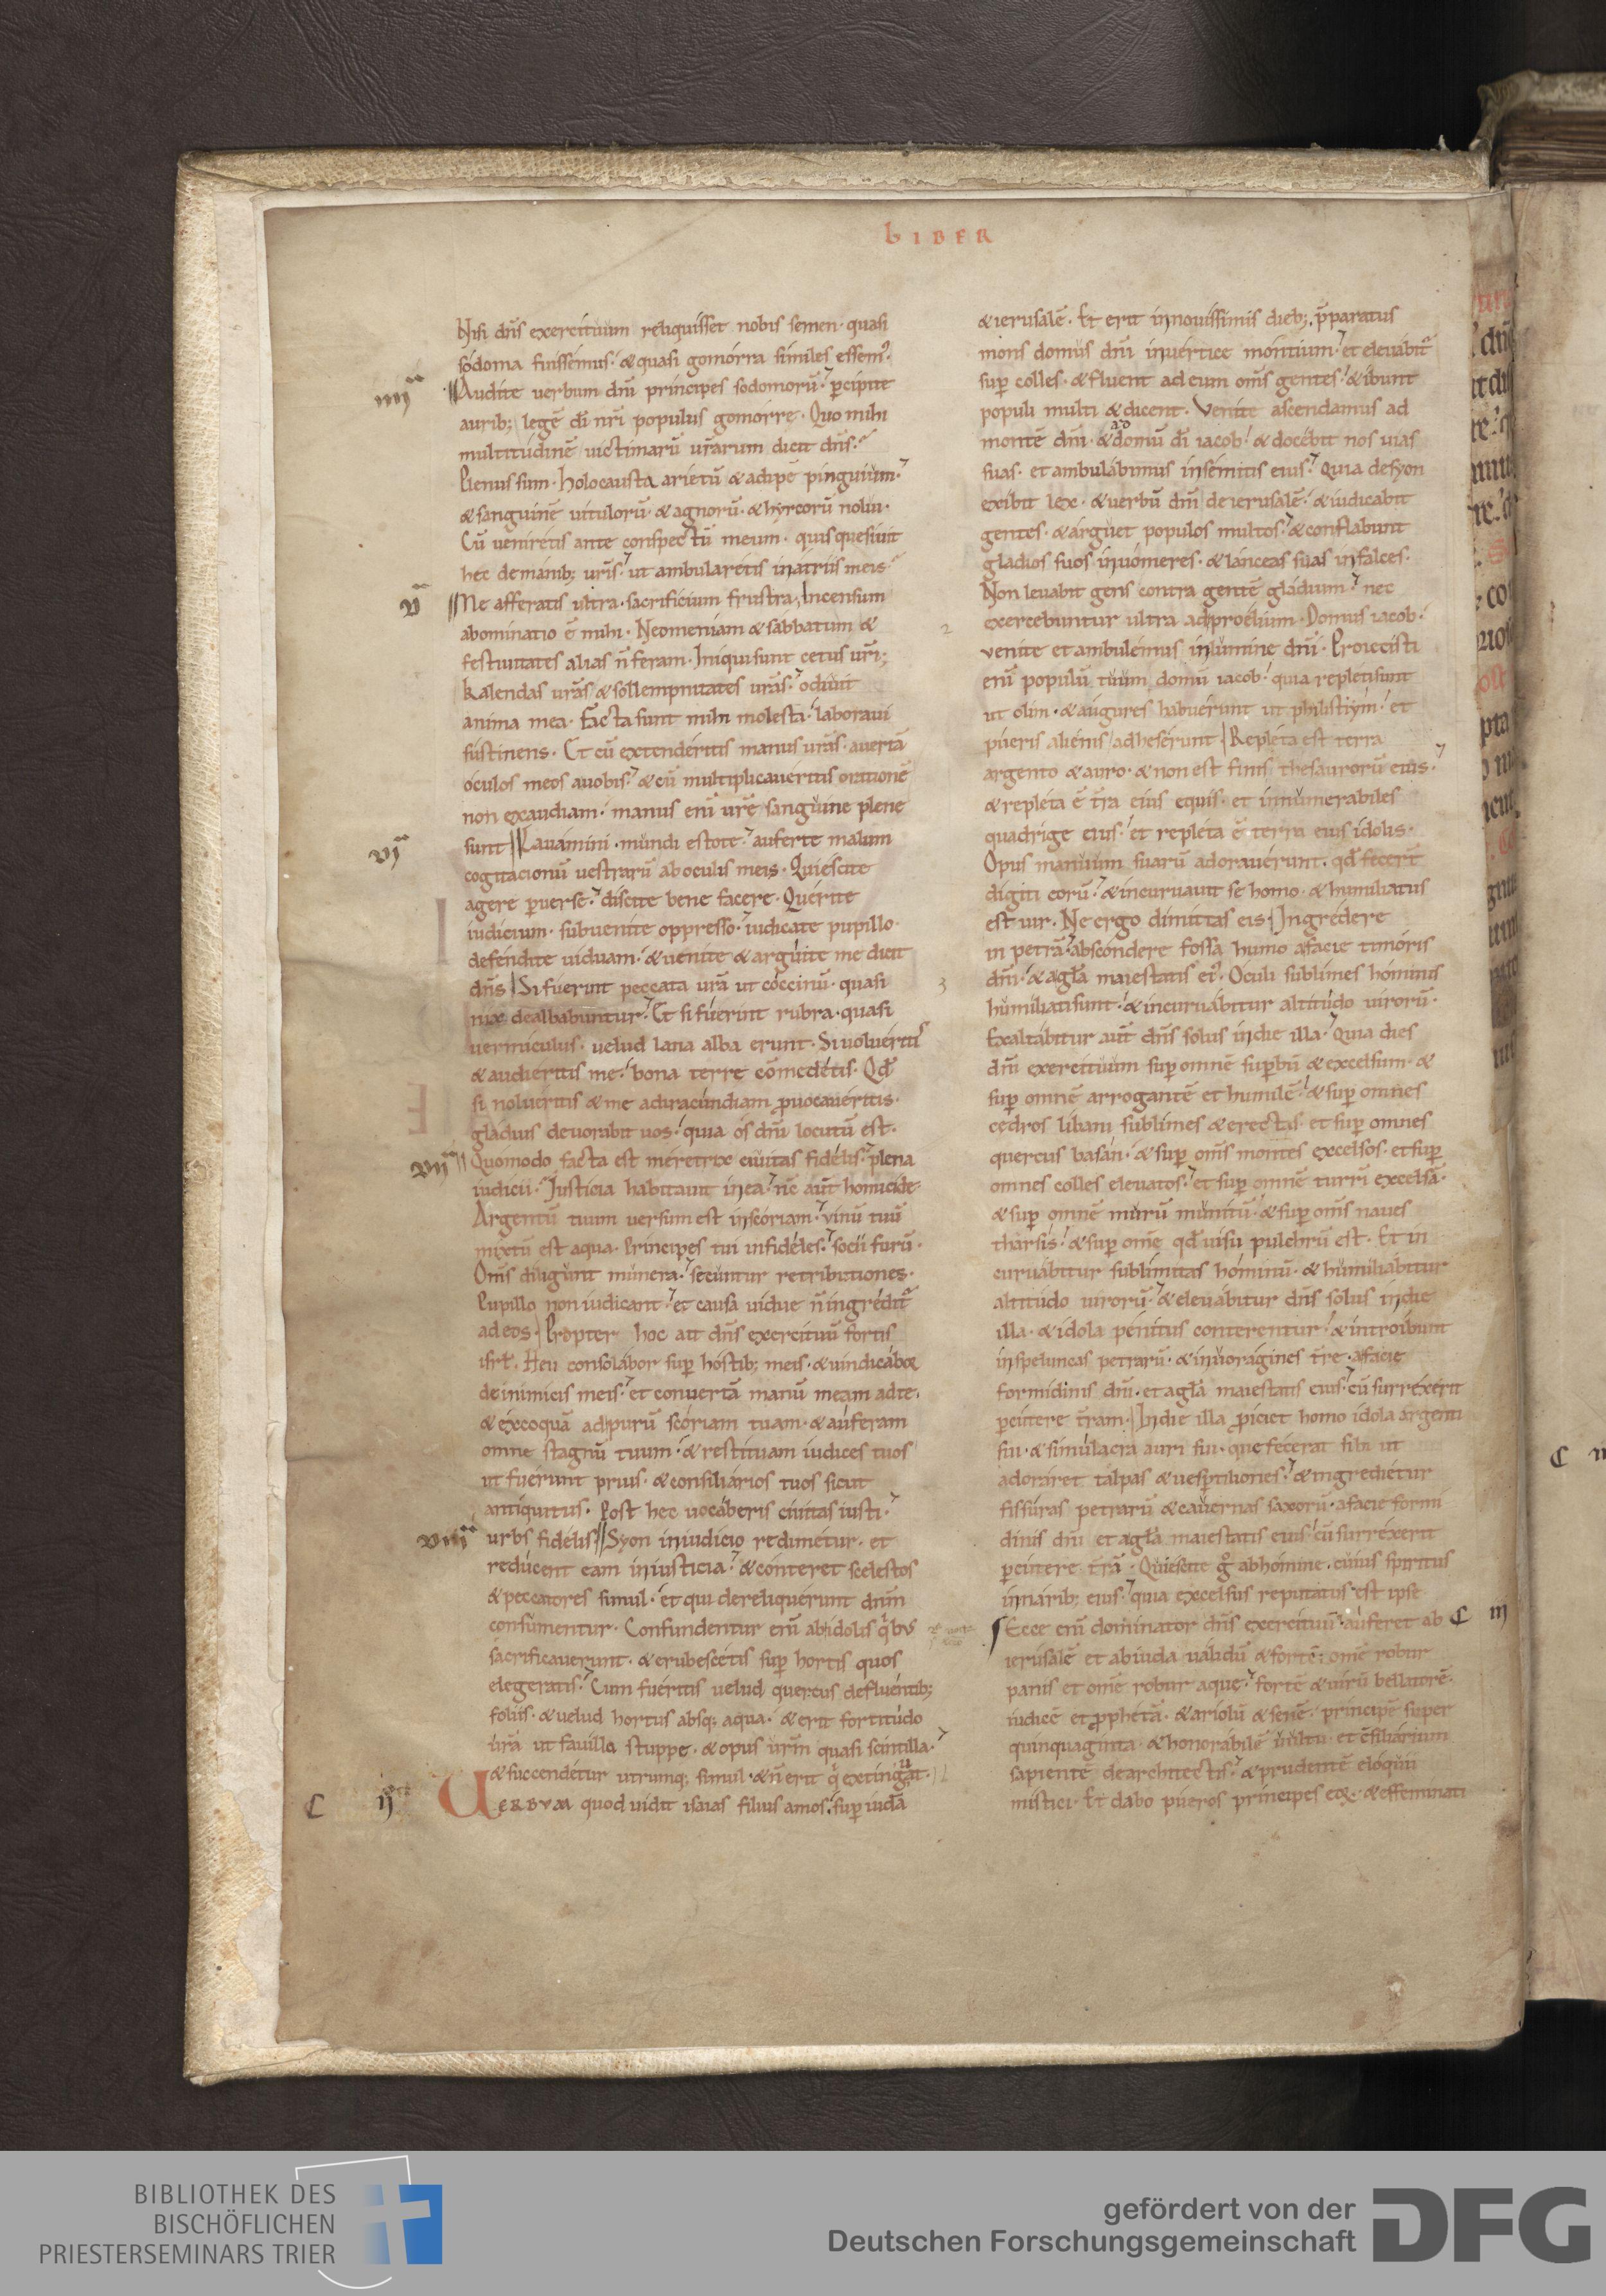 LIBER
Nisi dn̄s exercituum reliquisset nobis semen· quasi
sodoma fuissemus· & quasi gomorra similes essem⁹.
iiij Audite uerbum dn̄i principes sodomorū· p̄cipite
aurib; legē dī nr̄i populus gomorrę· Quo mihi
multitudinē uictimarū ur̄arum dicit dn̄s·
Plenus sum· holocausta arietū & adipē pinguium·
& sanguinē uitulorū· & agnorū· & hyrcorū nolui·
Cū ueniretis ante conspectū meum· quis quesiuit
hec de manib; ur̄is· ut ambularetis in atriis meis
v Ne afferatis ultra· sacrificium frustra· Incensum
abominatio ē mihi· Neomeniam & sabbatum &
festiuitates alias n̄ feram· Iniqui sunt cetus ur̄i;
kalendas ur̄as & sollempnitates ur̄as· odiuit
anima mea· Facta sunt mihi molesta· laboraui
sustinens· Et cū extenderitis manus ur̄as· auertā
oculos meos a uobis· & cū multiplicaueritis orationē
non exaudiam· manus enī ur̄ę sanguine plene
vj sunt Lauamini· mundi estote· auferte malum
cogitacionū uestrarū ab oculis meis· Quiescite
agere p̄uerse· discite bene facere· Querite
iudicium· subuenite oppresso· iudicate pupillo·
defendite uiduam· & uenite & arguite me dicit
dn̄s Si fuerint peccata ur̄a ut coccinū· quasi
nix dealbabuntur· Et si fuerint rubra· quasi
uermiculus· uelud lana alba erunt· Si uolueritis
& audieritis me· bona terrę cōmedetis· Qd̄
si nolueritis & me ad iracundiam p̄uocaueritis·
gladius deuorabit uos· quia os dn̄i locutū est·
vij Quomodo facta est meretrix ciuitas fidelis· plena
iudicii· Iusticia habitauit in ea· n̄c aut̄ homicide·
Argentū tuum uersum est in scoriam· uinū tuū
mixtū est aqua· Principes tui infideles· socii furū·
Om̄s diligunt munera· secuntur retributiones·
Pupillo non iudicant· et causa uidue n̄ ingredit᷑
ad eos· Propter hoc ait dn̄s exercituū fortis
isrł· Heu consolabor sup̄ hostib; meis· & uindicabor
de inimicis meis· et conuertā manū meam ad te·
& excoquā ad purū scoriam tuam· & auferam
omne stagnū tuum· & restituam iudices tuos
ut fuerunt prius· & consiliarios tuos sicut
antiquitus· Post hec uocaberis ciuitas iusti·
viii urbs fidelis Syon in iudicio redimetur· et
reducent eam in iusticia· & conteret scelestos
& peccatores simul· et qui dereliquerunt dnm̄
consumentur· Confundentur enī ab idolis qⁱbus
sacrificauerunt· & erubescetis sup̄ hortis quos
elegeratis· Cum fueritis uelud quercus defluentib;
foliis· & uelud hortus absq; aqua· & erit fortitudo
ur̄a ut fauilla stuppę· & opus ur̄m quasi scintilla·
& succendetur utrumq; simul· & n̄ erit qⁱ extinguat·
C ij UERBUM quod uidit isaias filius amos· sup̄ iudā
& ierusalē· Et erit in nouissimis dieb; p̄paratus
mons domus dn̄i in uertice montium· et eleuabit᷑
sup̄ colles· & fluent ad eum om̄s gentes· & ibunt
populi multi & dicent· Venite ascendamus ad
montē dn̄i· & ad domū dī iacob· & docebit nos uias
suas· et ambulabimus in semitis eius· Quia de syon
exibit lex· & uerbū dn̄i de ierusalē· & iudicabit
gentes· & arguet populos multos· & conflabunt
gladios suos in uomeres· & lanceas suas in falces·
Non leuabit gens contra gentē gladium· nec
2 exercebuntur ultra ad proelium· Domus iacob·
venite et ambulemus in lumine dn̄i· Proiecisti
enī populū tuum domū iacob· quia repleti sunt
ut olim· & augures habuerunt ut philistiym· et
pueris alienis adheserunt· Repleta est terra
argento & auro· & non est finis thesaurorū eius·
& repleta ē tr̄a eius equis· et innumerabiles
quadrigę eius· et repleta ē terra eius idolis·
Opus manuum suarū adorauerunt· qd̄ fecert̄
digiti eorū· & incuruauit se homo· & humiliatus
est uir· Ne ergo dimittas eis· Ingredere
in petrā· abscondere fossa humo a facie timoris
3 dn̄i· & a gła maiestatis ei⁹· Oculi sublimes hominis
humiliati sunt· & incuruabitur altitudo uirorū·
Exaltabitur aut̄ dn̄s solus in die illa· Quia dies
dn̄i exercituum sup̄ omnē sup̄bū & excelsum· &
sup̄ omnē arrogantē et humilē· & sup̄ omnes
cedros libani sublimes & erectas· et sup̄ omnes
quercus basan· & sup̄ om̄s montes excelsos· et sup̄
omnes colles eleuatos· et sup̄ omnē turrī excelsā·
& sup̄ omnē murū munitū· & sup̄ om̄s naues
tharsis· & sup̄ om̄e qd̄ uisu pulchrū est· Et in
curuabitur sublimitas hominū· & humiliabitur
altitudo uirorū· & eleuabitur dn̄s solus in die
illa· & idola penitus conterentur· & introibunt
in speluncas petrarū· & in uoragines tr̄e· a facie
formidinis dn̄i· et a gła maiestatis eius· cū surrexerit
p̄cutere tr̄am· In die illa p̄iciet homo idola argenti
sui· & simulacra auri sui· que fecerat sibi ut
adoraret talpas & uesp̄tiliones· & ingredietur
fissuras petrarū & cauernas saxorū· a facie formi
dinis dn̄i et a gła maiestatis eius· cū surrexerit
p̄cutere tr̄ā· Quiescite gͦ ab homine· cuius spiritus
in narib; eius· quia excelsus reputatus est ipse
Ecce enī dominator dn̄s exercituū· auferet ab C iij
ierusalē et ab iuda ualidū & fortē· om̄e robur
panis et om̄e robur aquę· fortē & uirū bellatorē·
iudicē et p̄phetā· & ariolū & senē· principē super
quinquaginta· & honorabilē uultu· et cōsiliarium
sapientē de architectis· & prudentē eloquii
mistici· Et dabo pueros principes eoꝝ· & effeminati
BIBLIOTHEK DES
BISCHÖFLICHEN
PRIESTERSEMINARS TRIER
gefördert von der
Deutschen Forschungsgemeinschaft
DFG